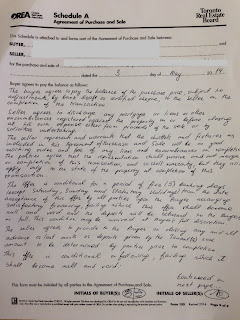 OREA
Schedule A
Agreement of Purchase and Sale
Toronto
Real Estate
Board
This Schedule is attached to and forms part of the Agreement of Purchase and Sale between:
BUYER,
SELLER,
for the purchase and sale of
dated the 3 day of May
Buyer agrees to pay the balance as follows:
The buyer agrees to pay the balance of the purchase price, subject to
adjustments, by bank draft or certified cheque, to the Seller on the
completion of the transaction.
Seller agrees to discharge any mortgage or liens or other
encumbrances registered against the property on or before closing
at his own expense either from proceeds of the sale or by
solicitors undertaking.
The seller represents and warrants that the chattels and fixtures as
included in this Agreement of Purchase and Sale will be in good
working order and free of any liens and encumbrances on completion
The parties agree that this representation shall survive and merge
on completion of this transaction, but apply
only to the state of the property at completion of this
transaction.
This Offer is conditional for a period of five (5) banking days
(except Saturday, Sunday and Statutory Holidays) from the date
acceptance of this offer by all parties upon the Buyer arranging
satisfactory financing failing which this offer shall become
null and void and the deposit will be returned to the Buyer
in full. This condition may be waived at Buyer's discretion.
The seller agrees to provide to the Buyer on closing any and all
advance rent and/or deposits given by the Tenant(s)
amount to be determined by parties prior to completion
This offer is conditional on following, failing which it
shall become null and void:
Continued on
next page
This form must be initialed by all parties to the Agreement of Purchase and Sale.
INITIALS OF BUYER(S):
INITIALS OF SELLER(S):